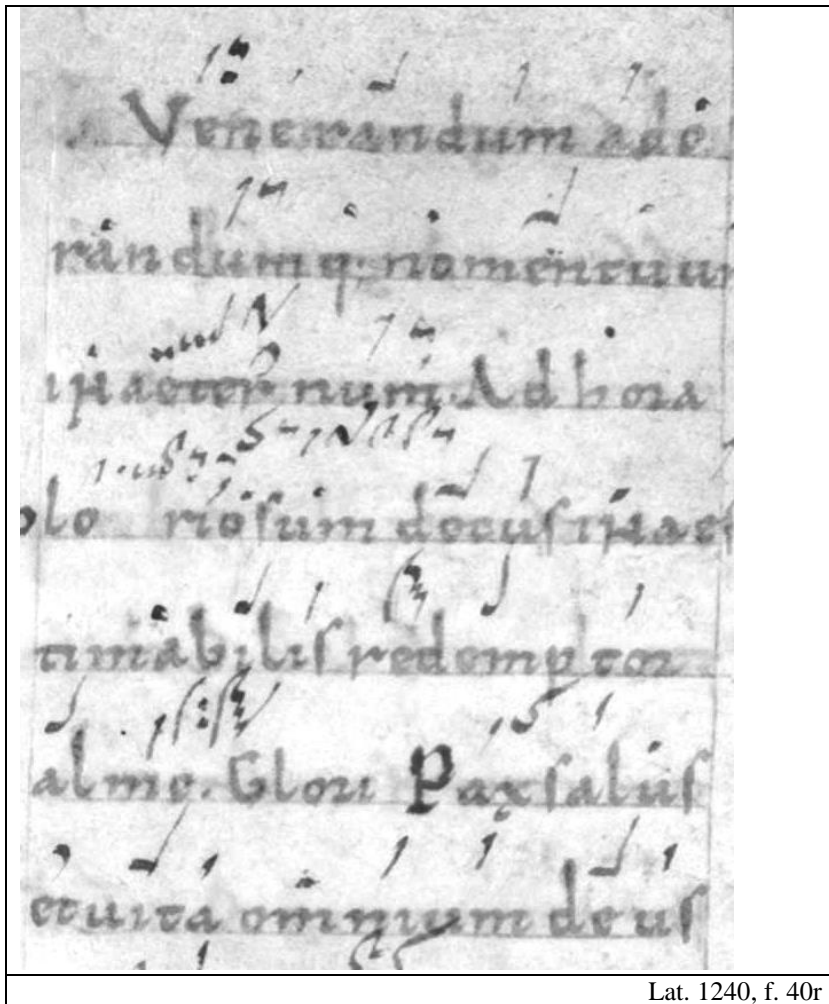 Venerandum ado
randumq; nomen tuum
inaeternum. Ad hora
glo riosum decus inaes
timabilis redemptor
alme. Glori Pax salus
et uita omnium deus
Lat. 1240, f. 40r